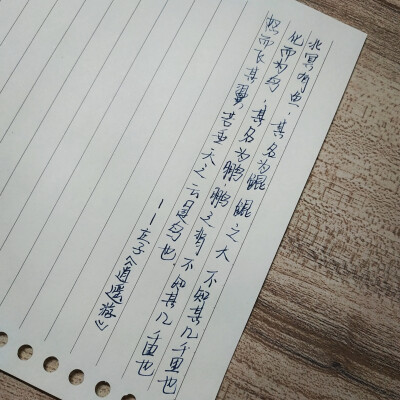 北冥有鱼.其名为鲲 鲲之大 不知其几千里也
化而为鸟.其名为鹏.鹏之背 不知其几千里也
怒而飞其翼若垂天之云是鸟也
——庄子《逍遥游》